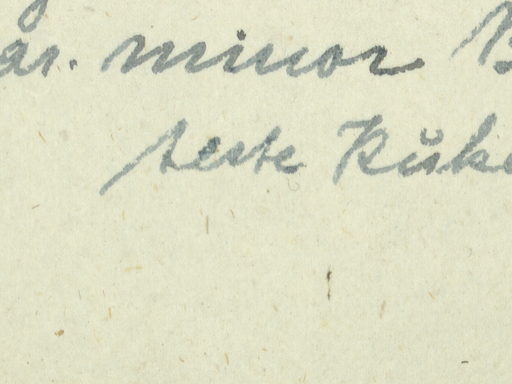 ar. minor B
teste Kůke